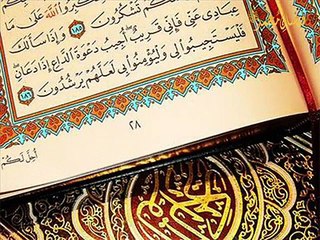 وَلِتُكَبِّرُوا۟ ٱللَّهَ عَلَىٰ
تَشْكُرُونَ ١٨٥ وَإِذَا سَأَلَكَ
عِبَادِى عَنِّى فَإِنِّى قَرِيبٌ أُجِيبُ دَعْوَةَ ٱلدَّاعِ إِذَا دَعَانِ
فَلْيَسْتَجِيبُوا۟ لِى وَلْيُؤْمِنُوا۟ بِى لَعَلَّهُمْ يَرْشُدُونَ ١٨٦
٢٨
أُحِلَّ لَكُمْ